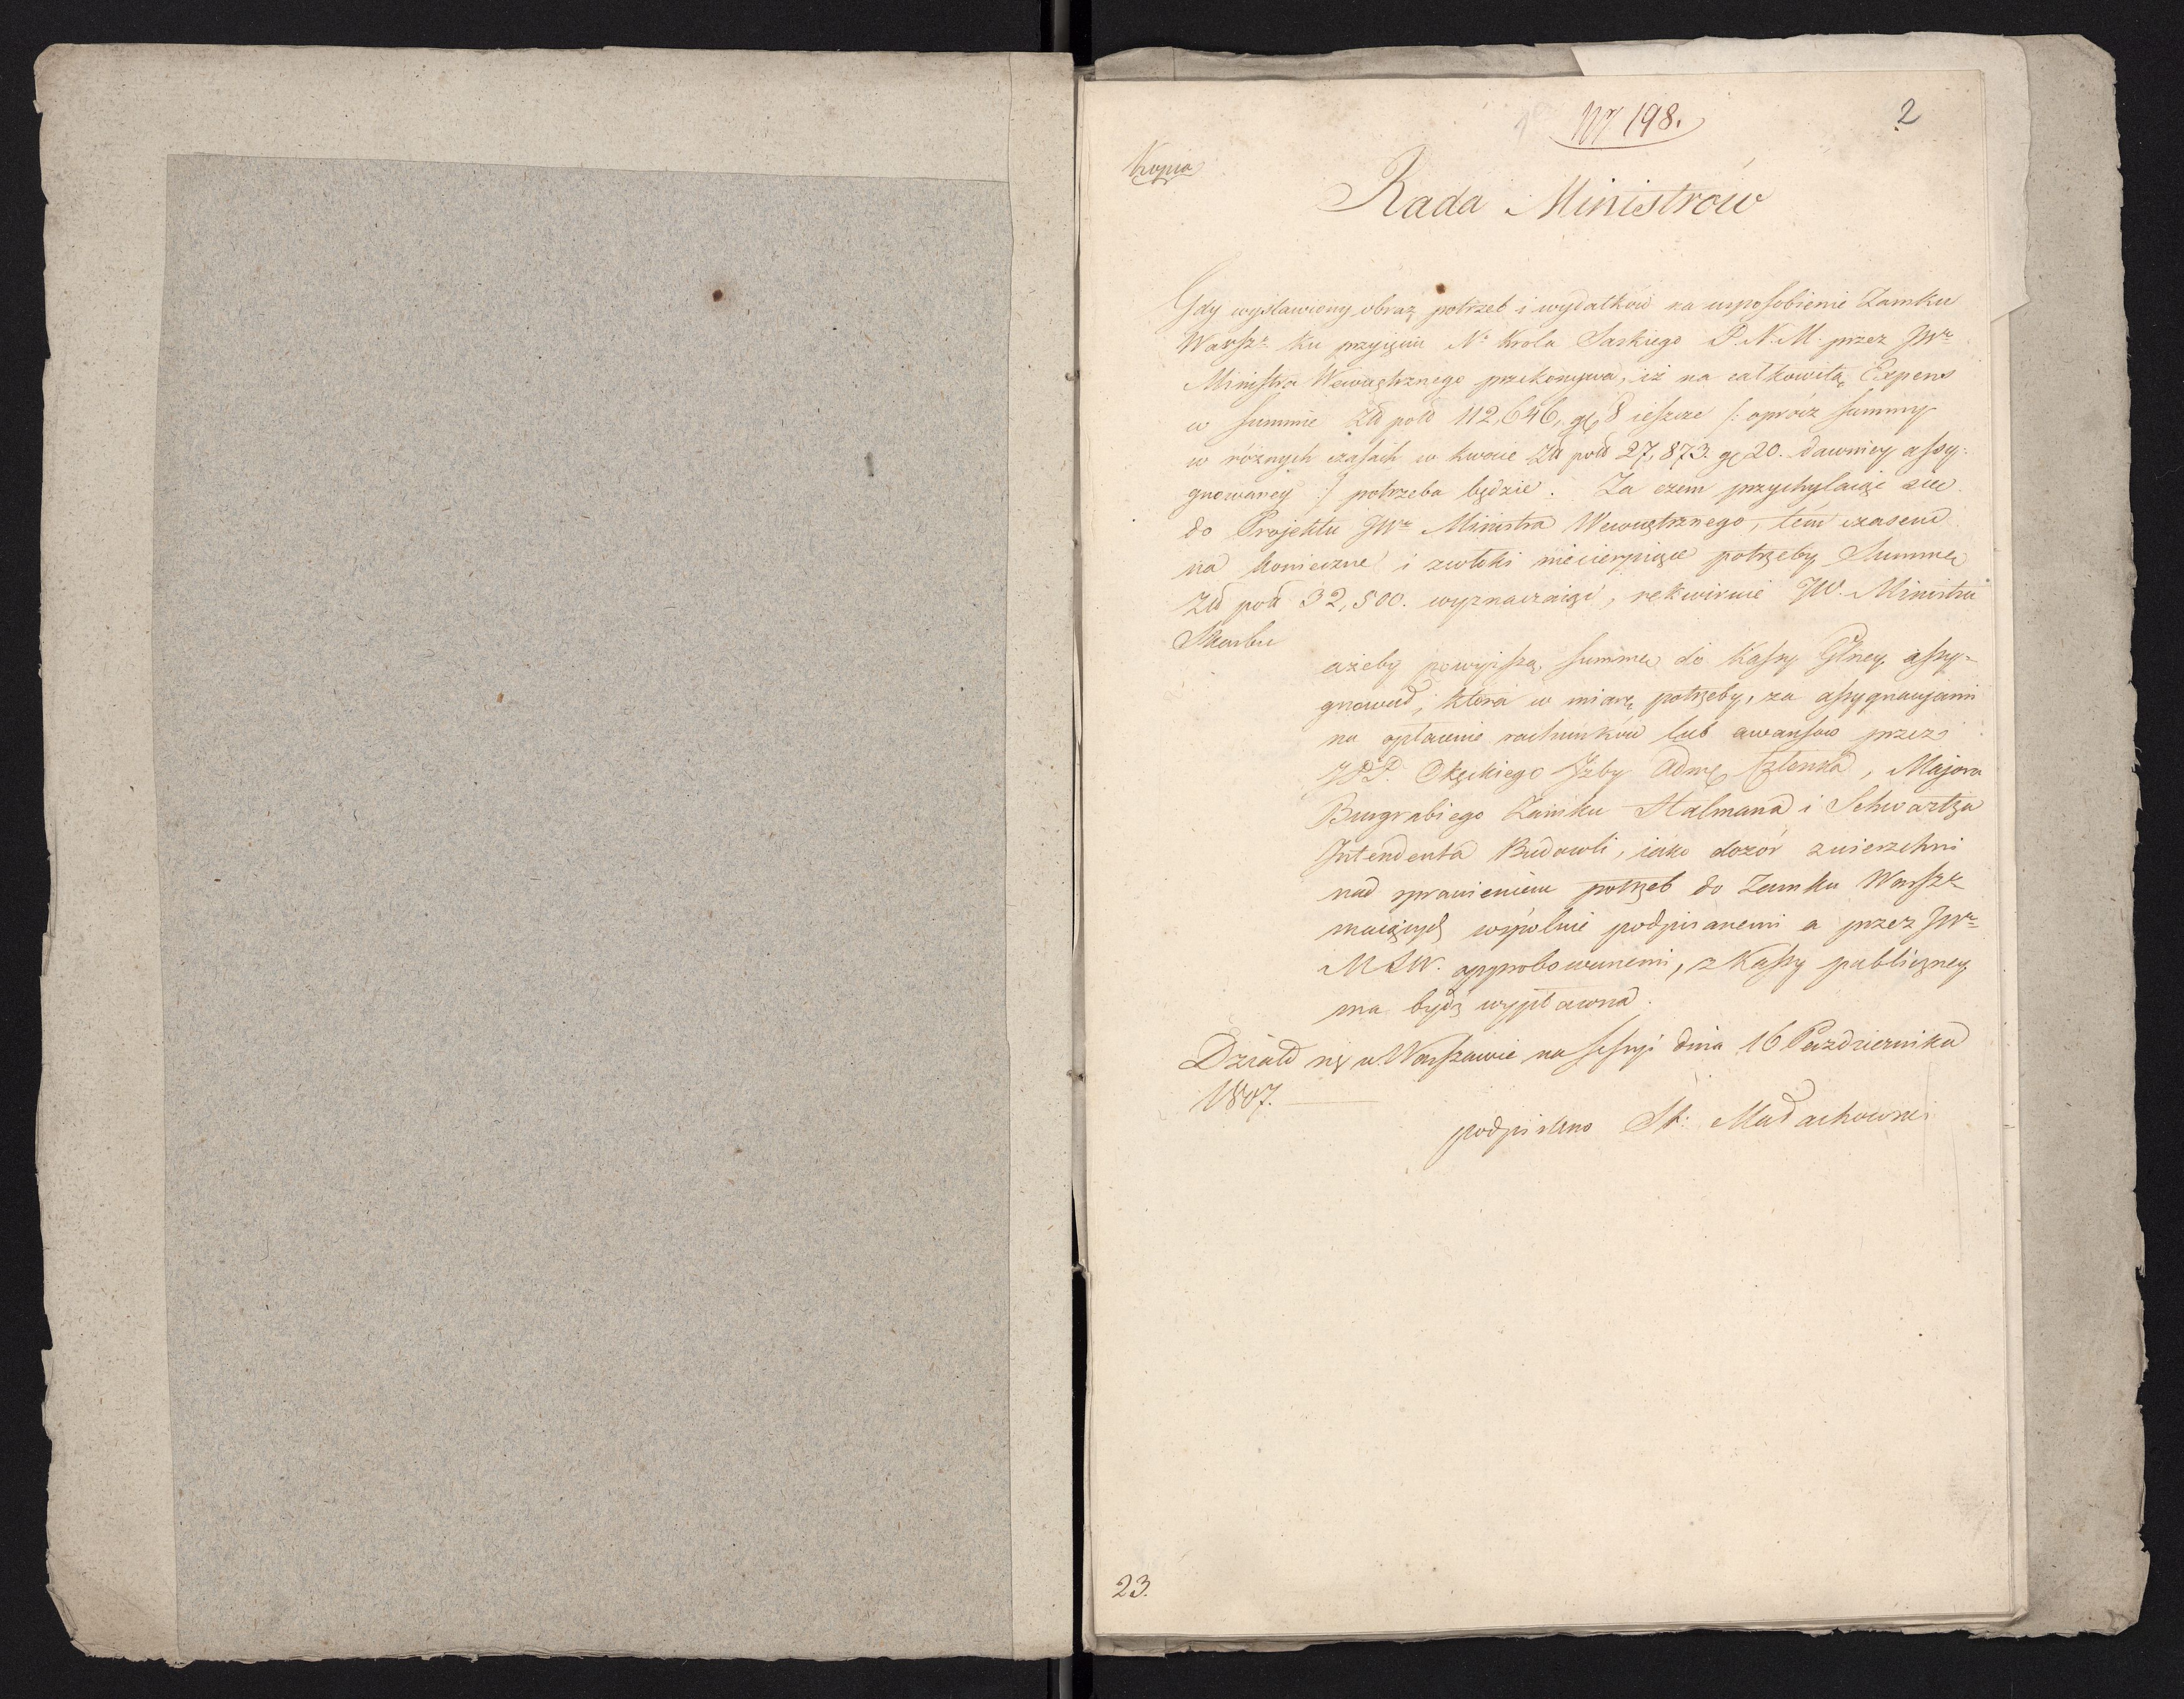 Nr 198.
2
Kopia
Rada Ministrów
Gdy wystawiony obraz potrzeb i wydatków na usposobienie Zamku
Warszo ku przyięciu No Krola Saskiego P. N. M. przez JWo
Ministra Wewnętrznego przekonywa, iż na całkowitą Expens
w summie Złł poll 112,646, gr 8 ieszcze /: oprócz summy
w różnych czasach w kwocie Złł poll 27,873. gr 20. dawniey assy-
gnowaney :/ potrzeba będzie. Za czem przychylaiąc się
do Projektu JWo Ministra Wewnętrznego, tem czasem
na konieczne i zwłoki niecierpiące potrzeby Summę
Złł poll 32,500. wyznaczaiąc, rekwiruie JW. Ministra
Skarbu
ażeby powyższą summę do Kassy Głney assy-
gnował, która w miarę potrzeby, za assygnacyami
na opłacenie rachunków lub awansów przez
Okęckiego Izby Admey Członka, Majora
Burgrabiego Zamku Halmana i Schwartza
Intendenta Budowli, iako dozór zwierzchni
nad sprawieniem potrzeb do Zamku Warszo
maiących wspólnie podpisanemi a przez JWo
M S W. approbowanemi, z Kassy publiczney
ma bydź wypłacona.
Działo się w Warszawie na sessyi dnia 16 Października
1807.
podpisano St: Małachowski
23.